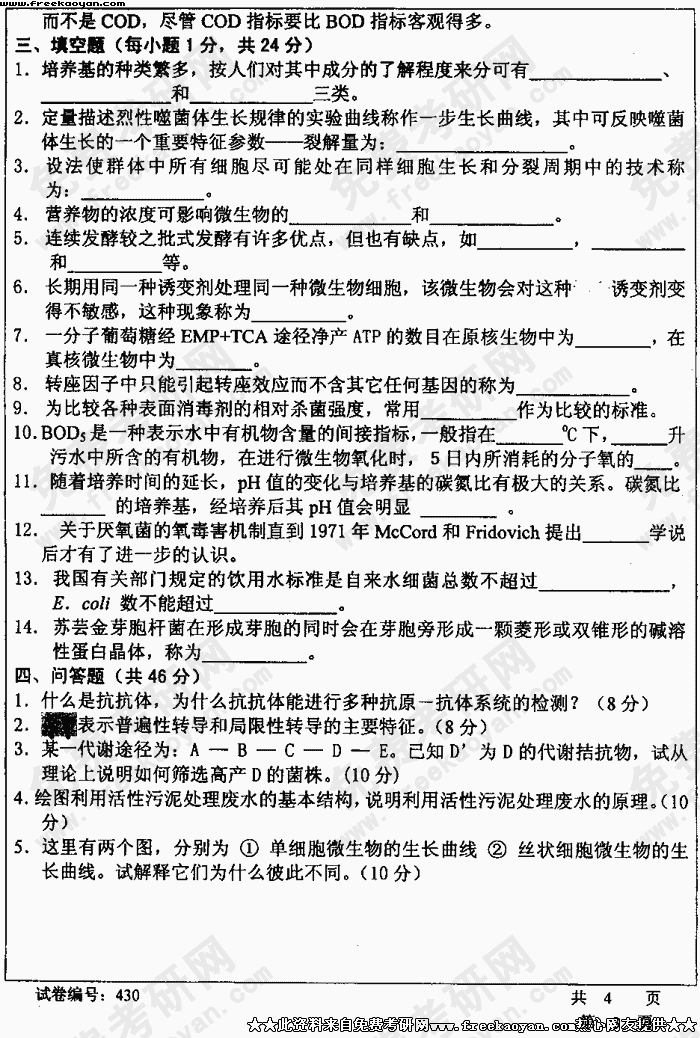 www.freekaoyan.com
而不是 COD，尽管 COD 指标要比 BOD 指标客观得多。
三、填空题（每小题1分，共24分）
1．培养基的种类繁多，按人们对其中成分的了解程度来分可有____________、
____________和____________三类。
2．定量描述烈性噬菌体生长规律的实验曲线称作一步生长曲线，其中可反映噬菌
体生长的一个重要特征参数——裂解量为：________________。
3．设法使群体中所有细胞尽可能处在同样细胞生长和分裂周期中的技术称
为：____________。
4．营养物的浓度可影响微生物的____________和____________。
5．连续发酵较之批式发酵有许多优点，但也有缺点，如_________，_________
和_________等。
6．长期用同一种诱变剂处理同一种微生物细胞，该微生物会对这种 诱变剂变
得不敏感，这种现象称为_________。
7．一分子葡萄糖经 EMP+TCA 途径净产 ATP 的数目在原核生物中为_______，在
真核微生物中为_______。
8．转座因子中只能引起转座效应而不含其它任何基因的称为___________。
9．为比较各种表面消毒剂的相对杀菌强度，常用_________作为比较的标准。
10.BOD5是一种表示水中有机物含量的间接指标，一般指在______℃下，_____升
污水中所含的有机物，在进行微生物氧化时，5日内所消耗的分子氧的____。
11．随着培养时间的延长，pH 值的变化与培养基的碳氮比有极大的关系。碳氮比
______ 的培养基，经培养后其 pH 值会明显 _______ 。
12． 关于厌氧菌的氧毒害机制直到1971年McCord和Fridovich提出______学说
后才有了进一步的认识。
13．我国有关部门规定的饮用水标准是自来水细菌总数不超过____________，
E．coli 数不能超过____________。
14．苏芸金芽胞杆菌在形成芽胞的同时会在芽胞旁形成一颗菱形或双锥形的碱溶
性蛋白晶体，称为__________。
四、问答题（共46分）
1．什么是抗抗体，为什么抗抗体能进行多种抗原－抗体系统的检测？（8分）
2．表示普遍性转导和局限性转导的主要特征。（8分）
3．某一代谢途径为：A — B — C — D — E。已知 D’ 为 D 的代谢拮抗物，试从
理论上说明如何筛选高产 D 的菌株。（10分）
4．绘图利用活性污泥处理废水的基本结构，说明利用活性污泥处理废水的原理。（10
分）
5．这里有两个图，分别为 ① 单细胞微生物的生长曲线 ② 丝状细胞微生物的生
长曲线。试解释它们为什么彼此不同。（10分）
试卷编号：430
共 4 页
★★此资料来自免费考研网www.freekaoyan.com热心网友提供★★